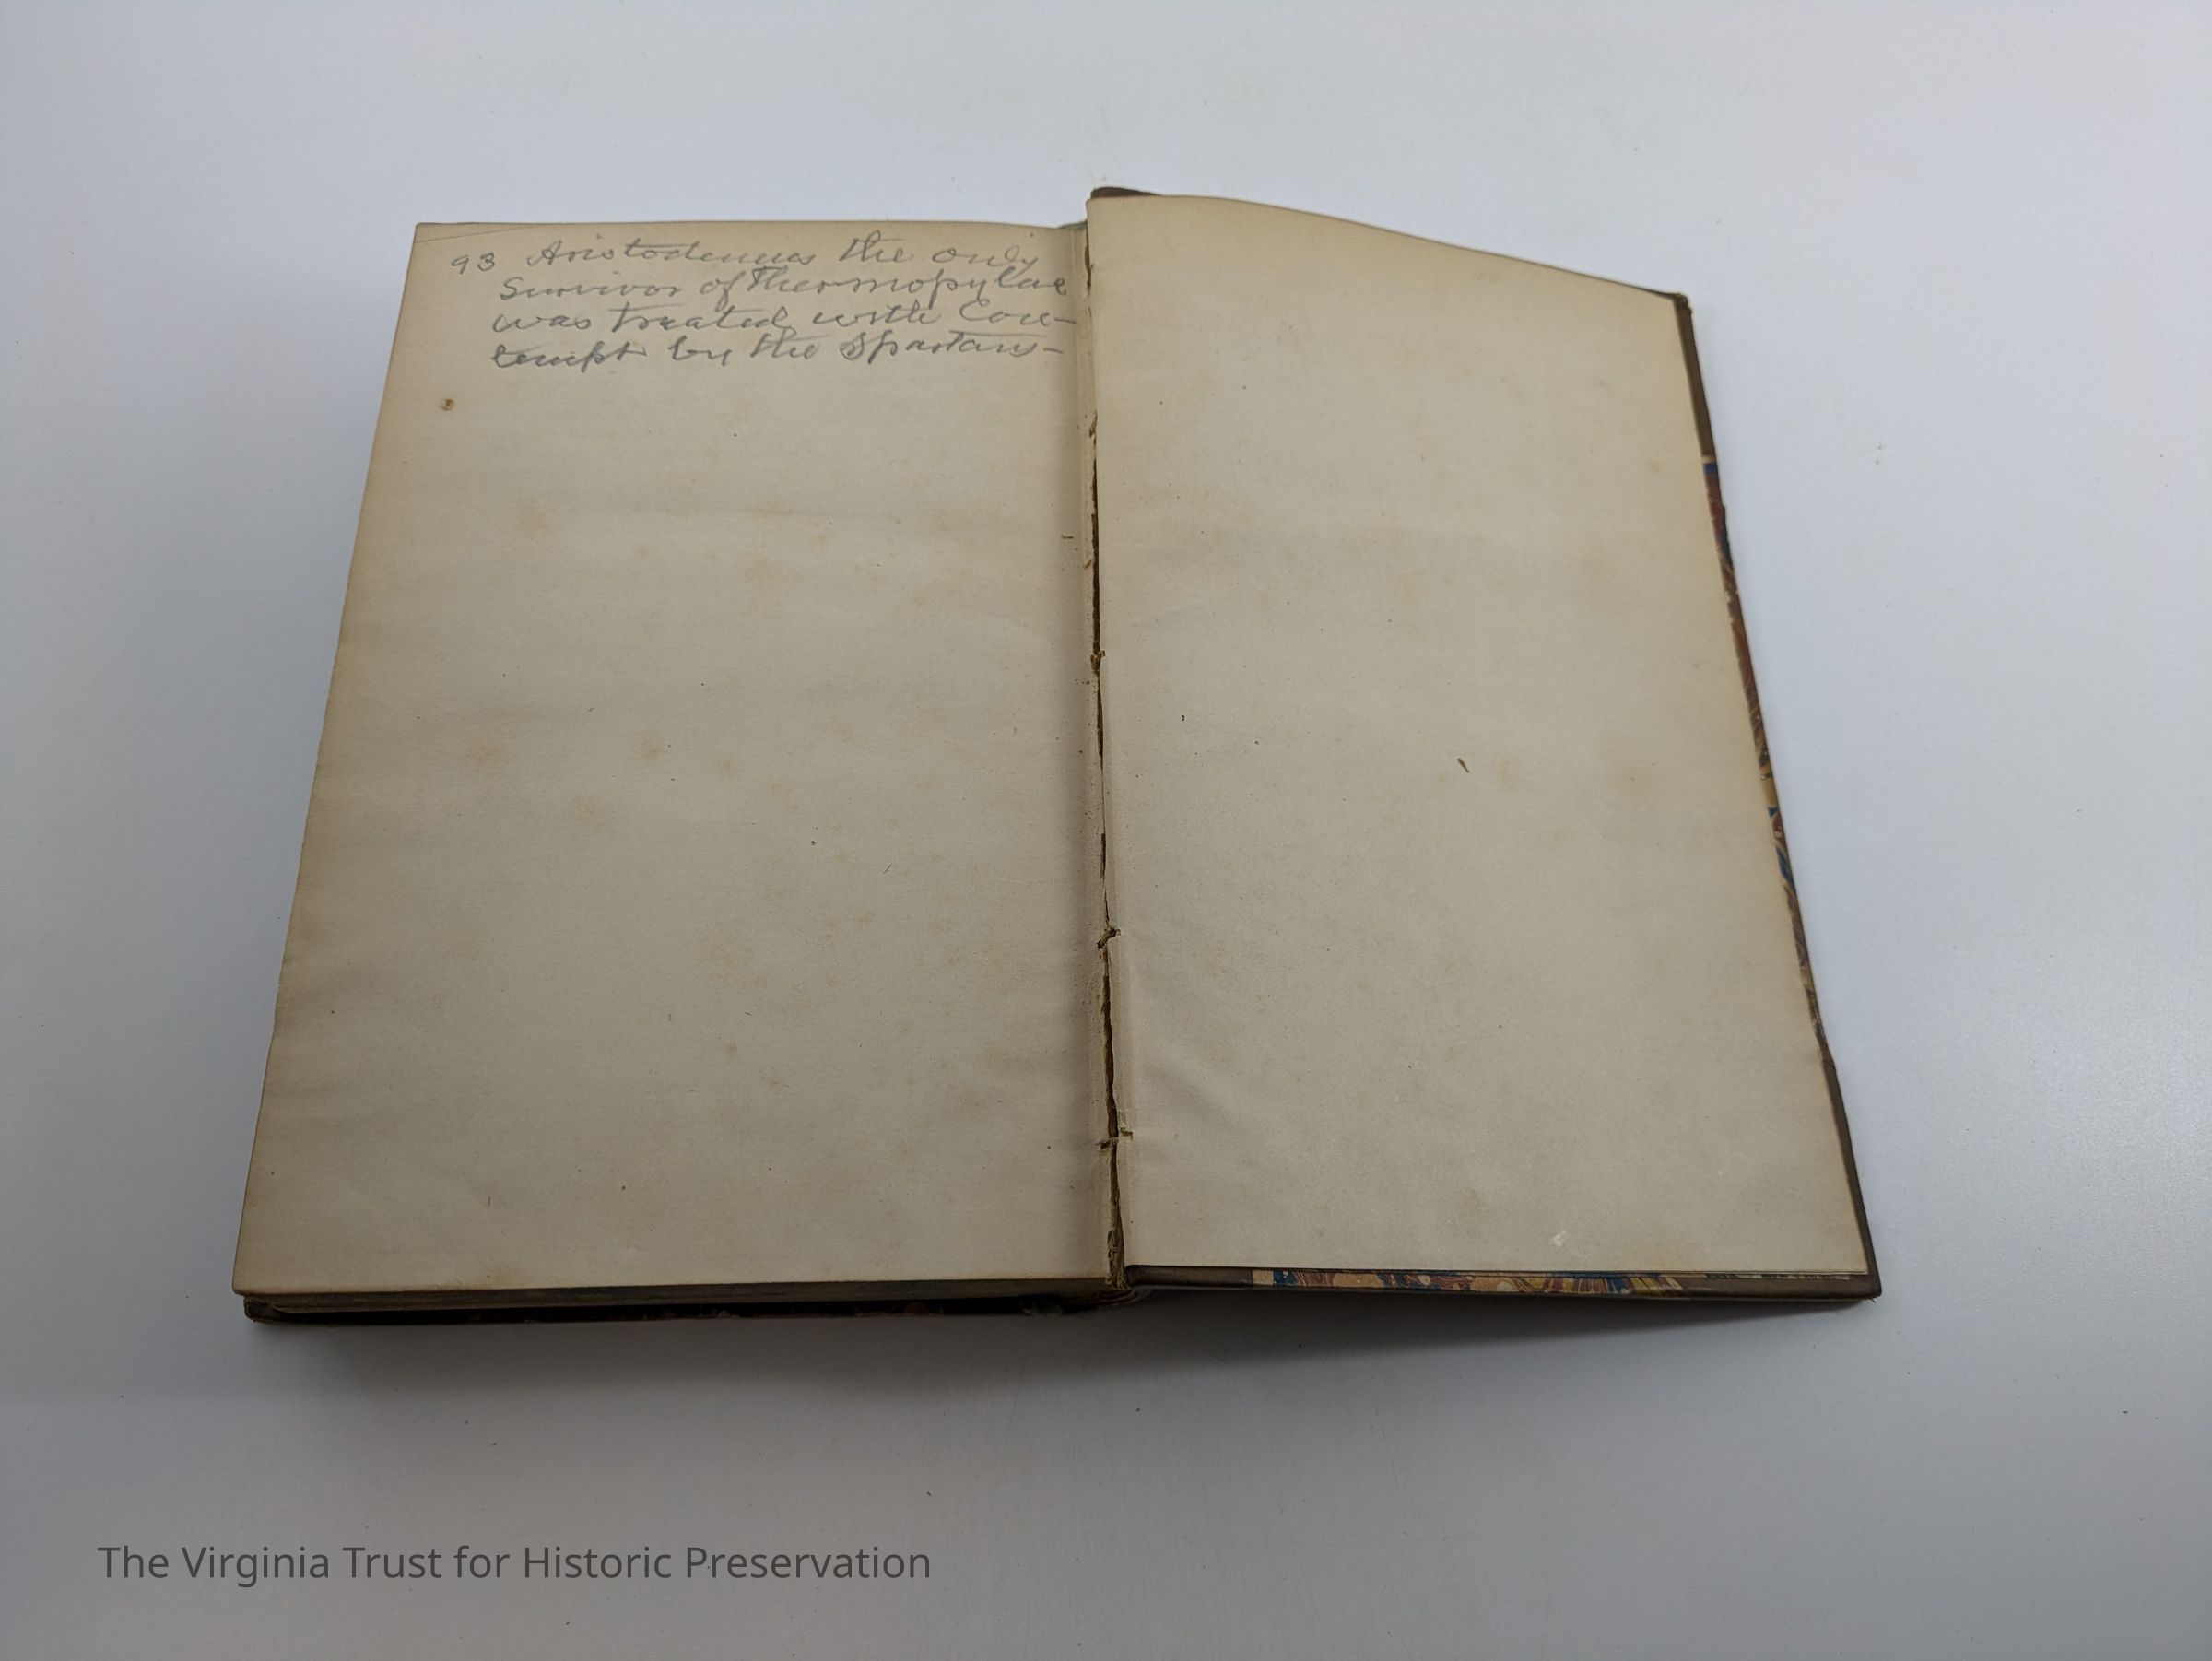 93 Aristodemus the only
survivor of Thermopylae
was treated with Con-
tempt by the Spartans-
The Virginia Trust for Historic Preservation